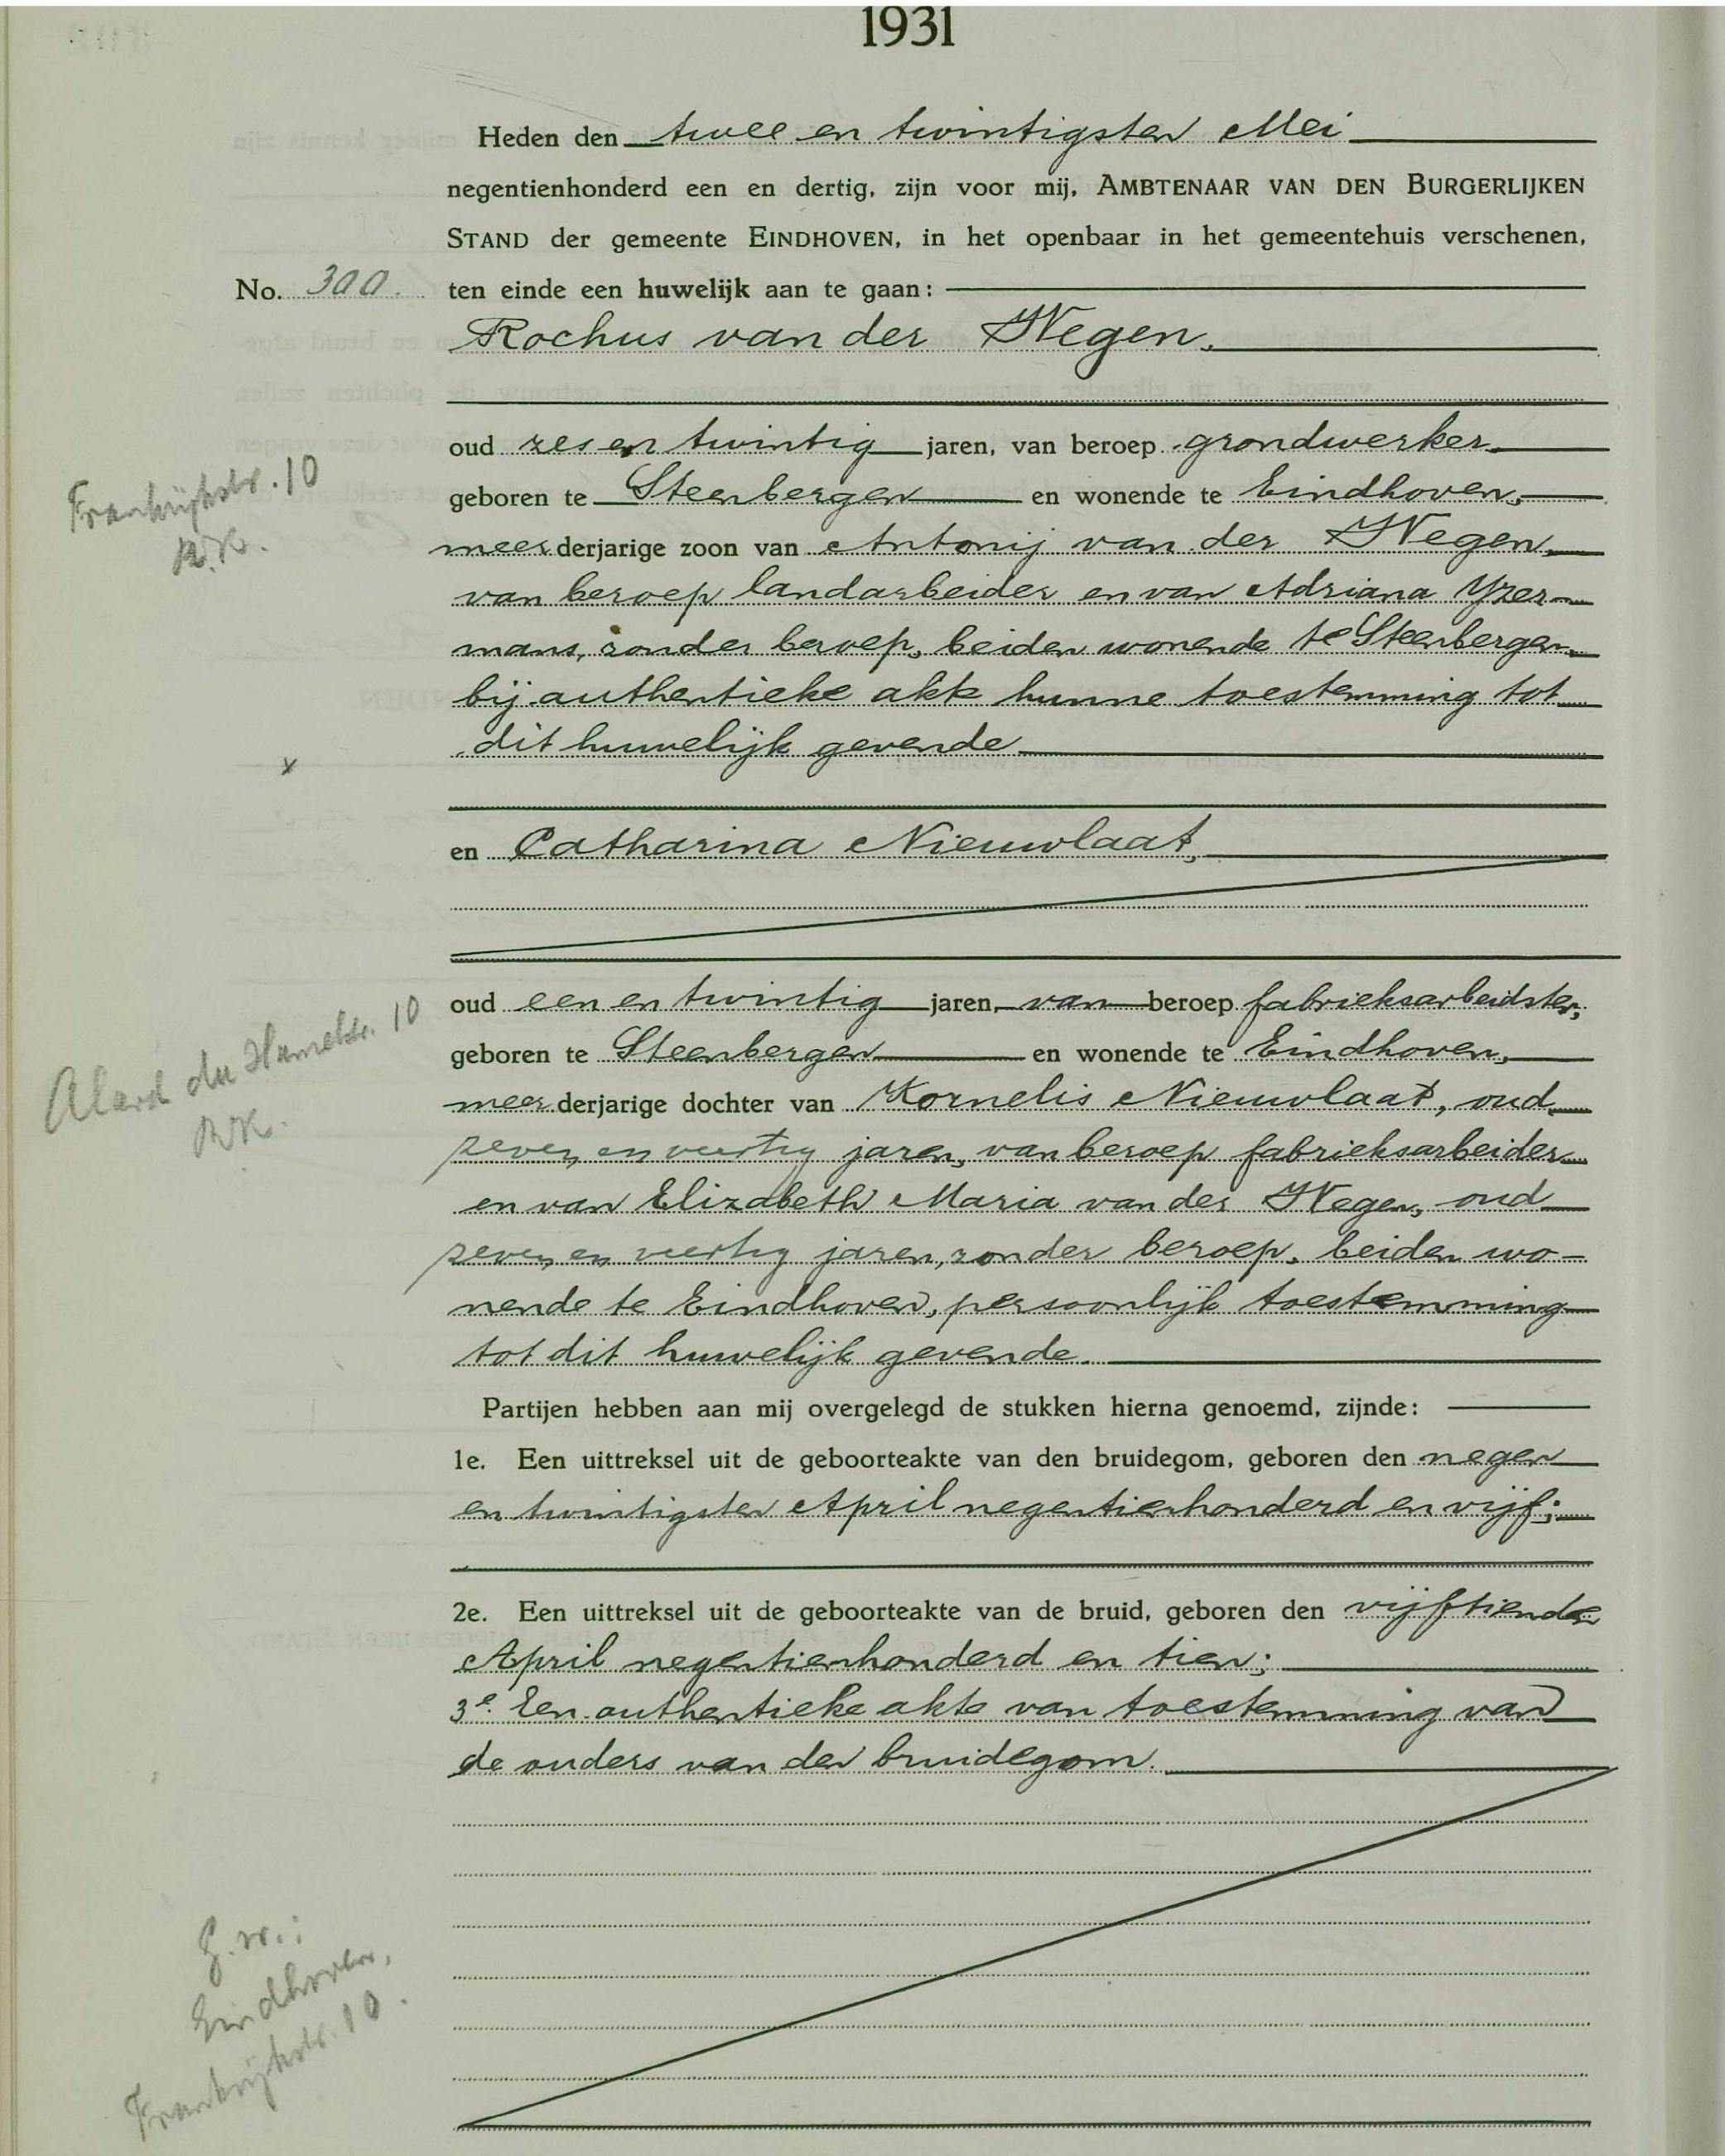 1931
Heden den twee en twintigsten Mei
negentienhonderd een en dertig, zijn voor mij, AMBTENAAR VAN DEN BURGERLIJKEN
STAND der gemeente EINDHOVEN, in het openbaar in het gemeentehuis verschenen,
No. 300. ten einde een huwelijk aan te gaan:
Rochus van der Wegen,
oud zes en twintig jaren, van beroep grondwerker
geboren te Steenbergen en wonende te Eindhoven,
Frankrijkstr. 10
R.K.
meerderjarige zoon van Antonij van der Wegen,
van beroep landarbeider en van Adriana Yzer-
mans, zonder beroep, beiden wonende te Steenbergen
bij authentieke akte hunne toestemming tot
dit huwelijk gevende
x
en Catharina Nieuwlaat,
oud een en twintig jaren, van beroep fabrieksarbeidster,
geboren te Steenbergen en wonende te Eindhoven,
Alard du Hamelstr. 10
R.K.
meerderjarige dochter van Kornelis Nieuwlaat, oud
zeven en veertig jaren, van beroep fabrieksarbeider
en van Elizabeth Maria van der Wegen, oud
zeven en veertig jaren, zonder beroep, beiden wo-
nende te Eindhoven, persoonlijk toestemming
tot dit huwelijk gevende.
Partijen hebben aan mij overgelegd de stukken hierna genoemd, zijnde:
1e. Een uittreksel uit de geboorteakte van den bruidegom, geboren den negen
en twintigsten April negentienhonderd en vijf;
2e. Een uittreksel uit de geboorteakte van de bruid, geboren den vijftienden
April negentienhonderd en tien;
3e. Een authentieke akte van toestemming van
de ouders van den bruidegom.
G.w.:
Eindhoven,
Frankrijkstr. 10.